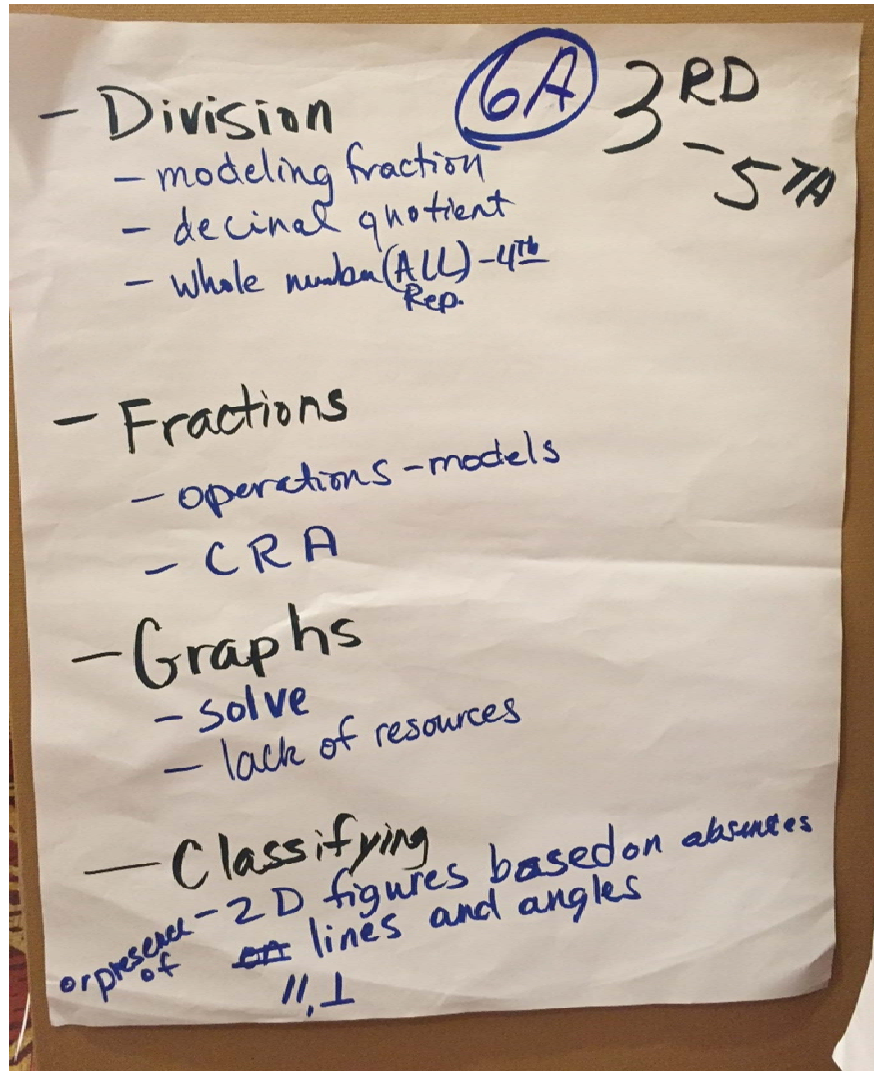 6A 3RD
- 5TH
- Division
- modeling fraction
- decimal quotient
- whole number (ALL) - 4th
Rep.
- Fractions
- operations - models
- CRA
- Graphs
- solve
- lack of resources
- Classifying
- 2D figures based on absences
or presence of lines and angles
//, ⊥